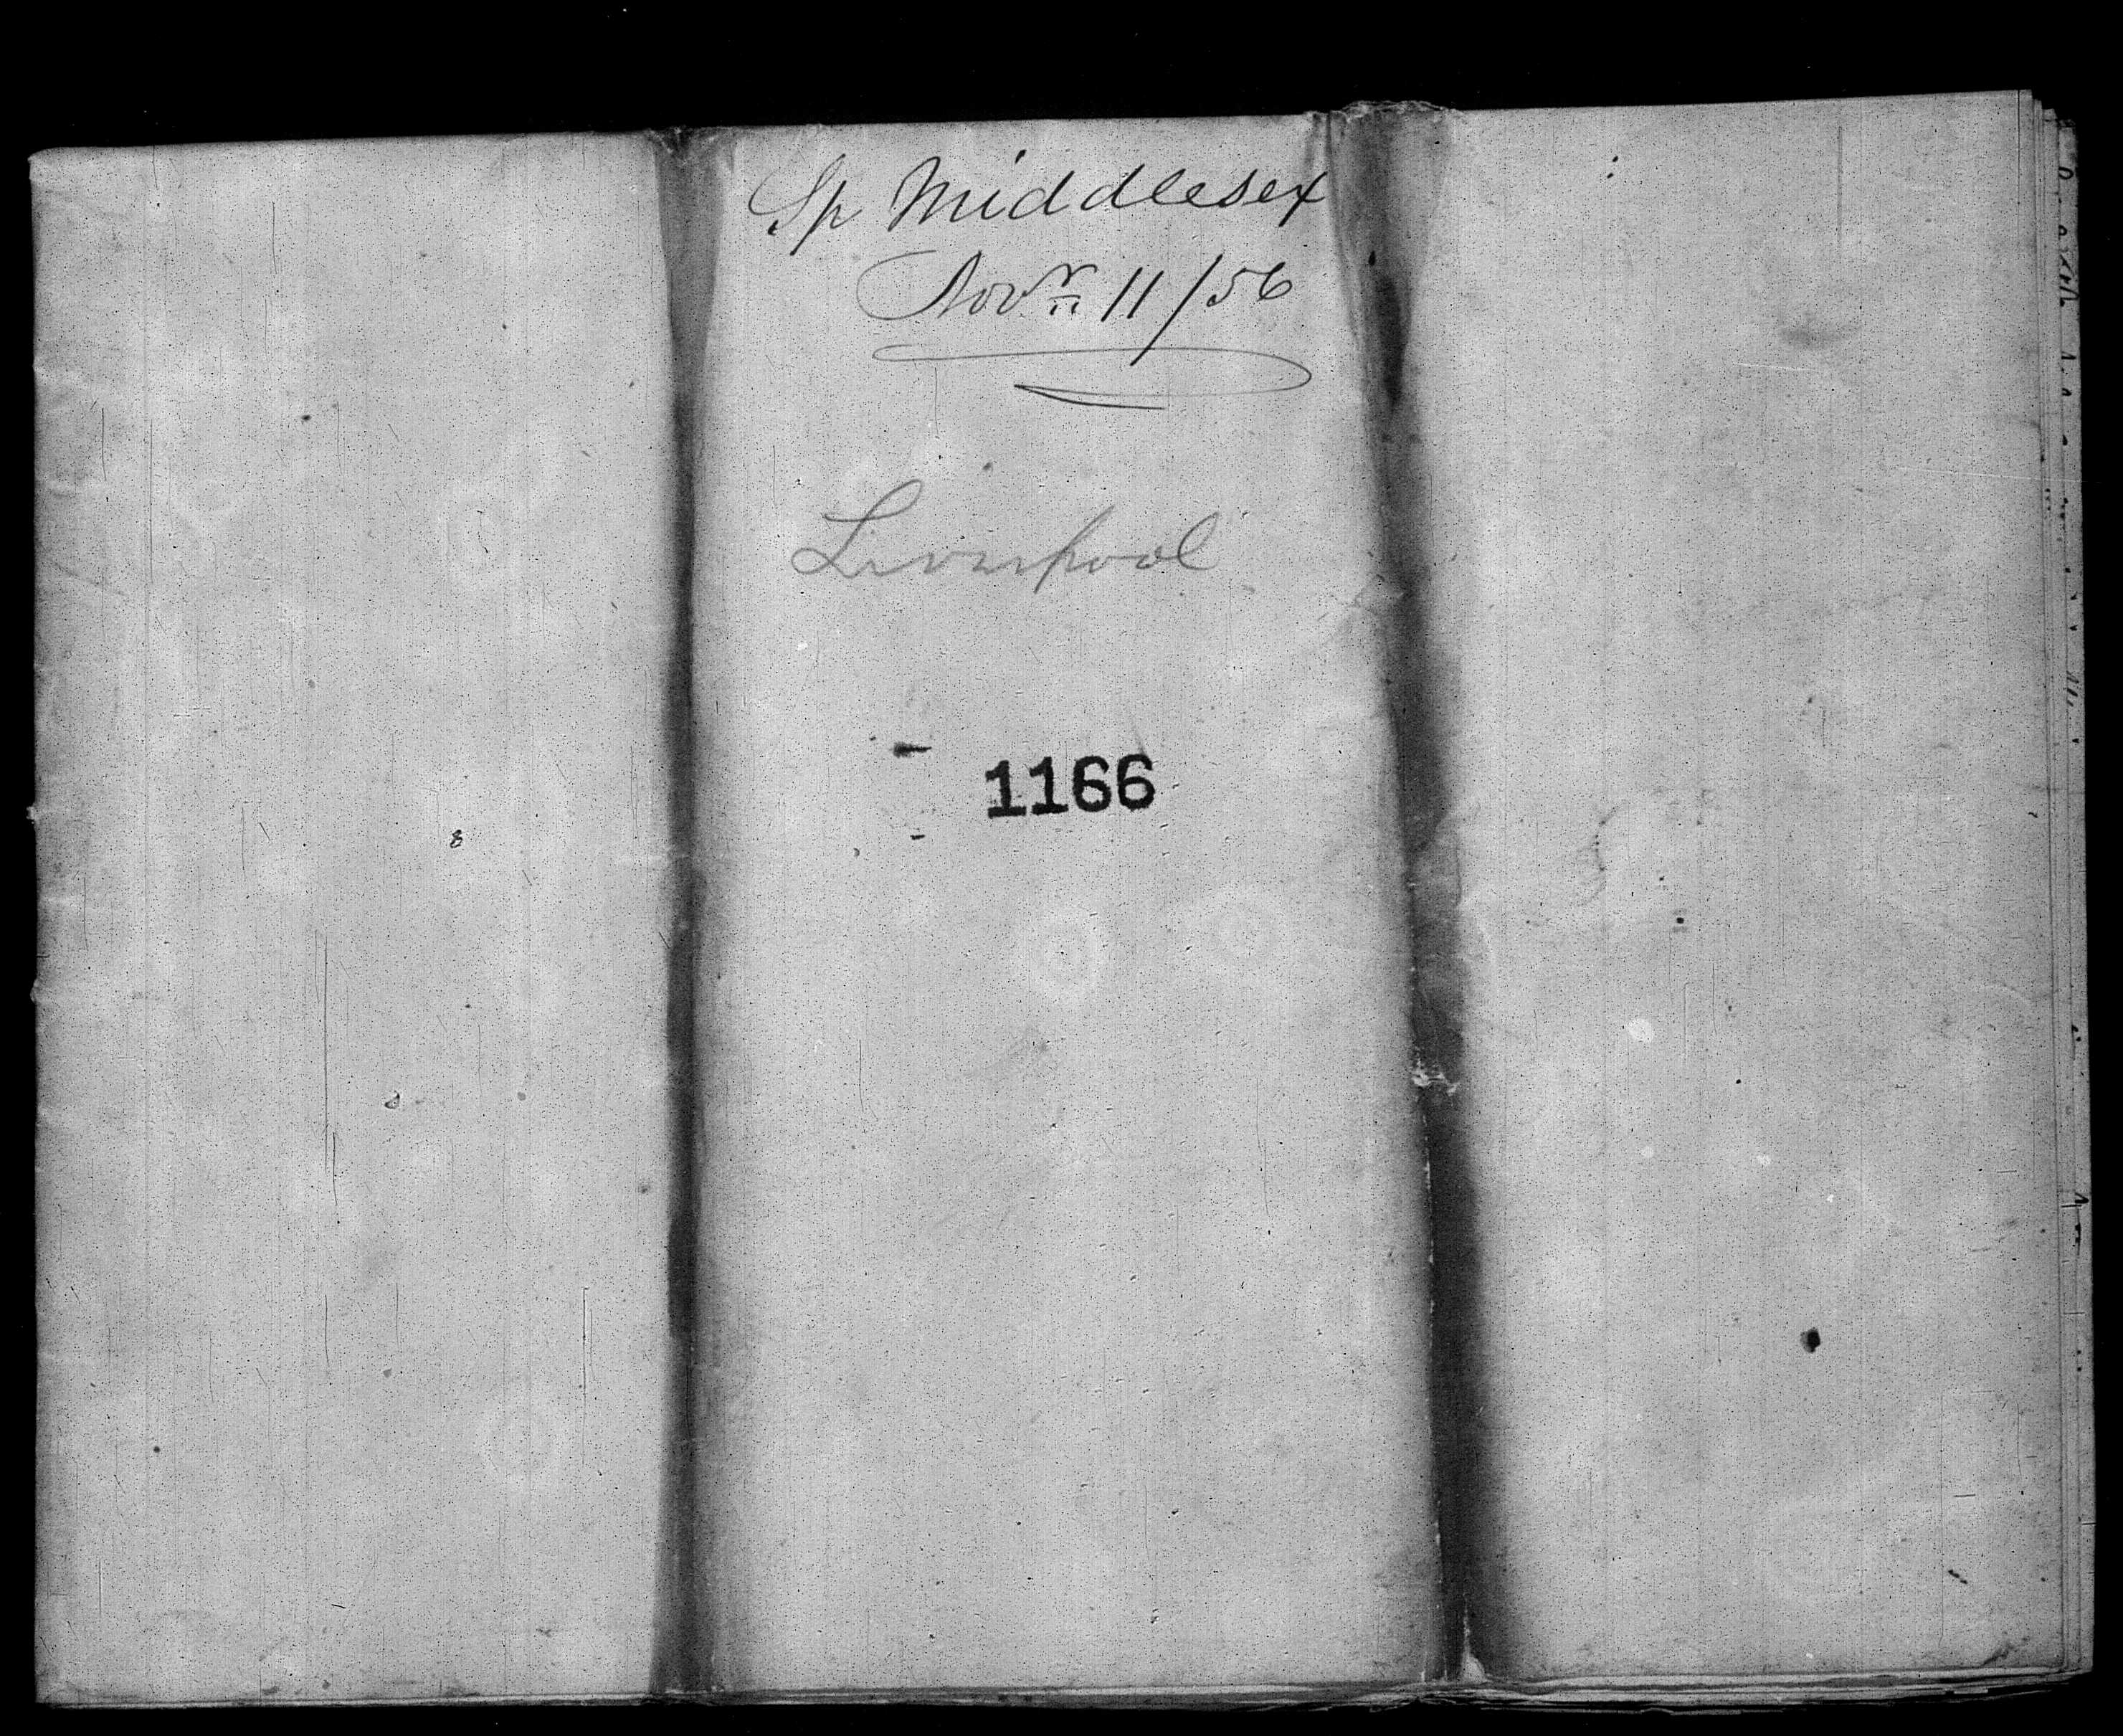 Sp Middlesex
Novr 11/56
Liverpool
1166